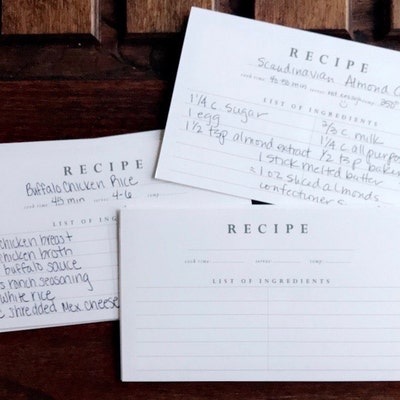 RECIPE
Scandinavian Almond C
cook time 40-50 min serves temp 350°
LIST OF INGREDIENTS
1 1/4 c. sugar
2/3 c. milk
1 egg
1 1/4 c. all purpos
1 1/2 tsp almond extract
1/2 tsp baki
1 stick melted butter
1 oz sliced almonds
confectioner s
RECIPE
Buffalo Chicken Rice
cook time 45 min serves 4-6
LIST OF ING
chicken breast
chicken broth
buffalo sauce
s ranch seasoning
white rice
c shredded Mex. cheese
RECIPE
cook time serves temp
LIST OF INGREDIENTS